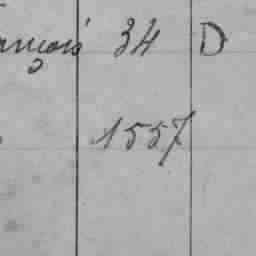 ançois 34 D
1557